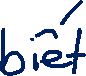 biết